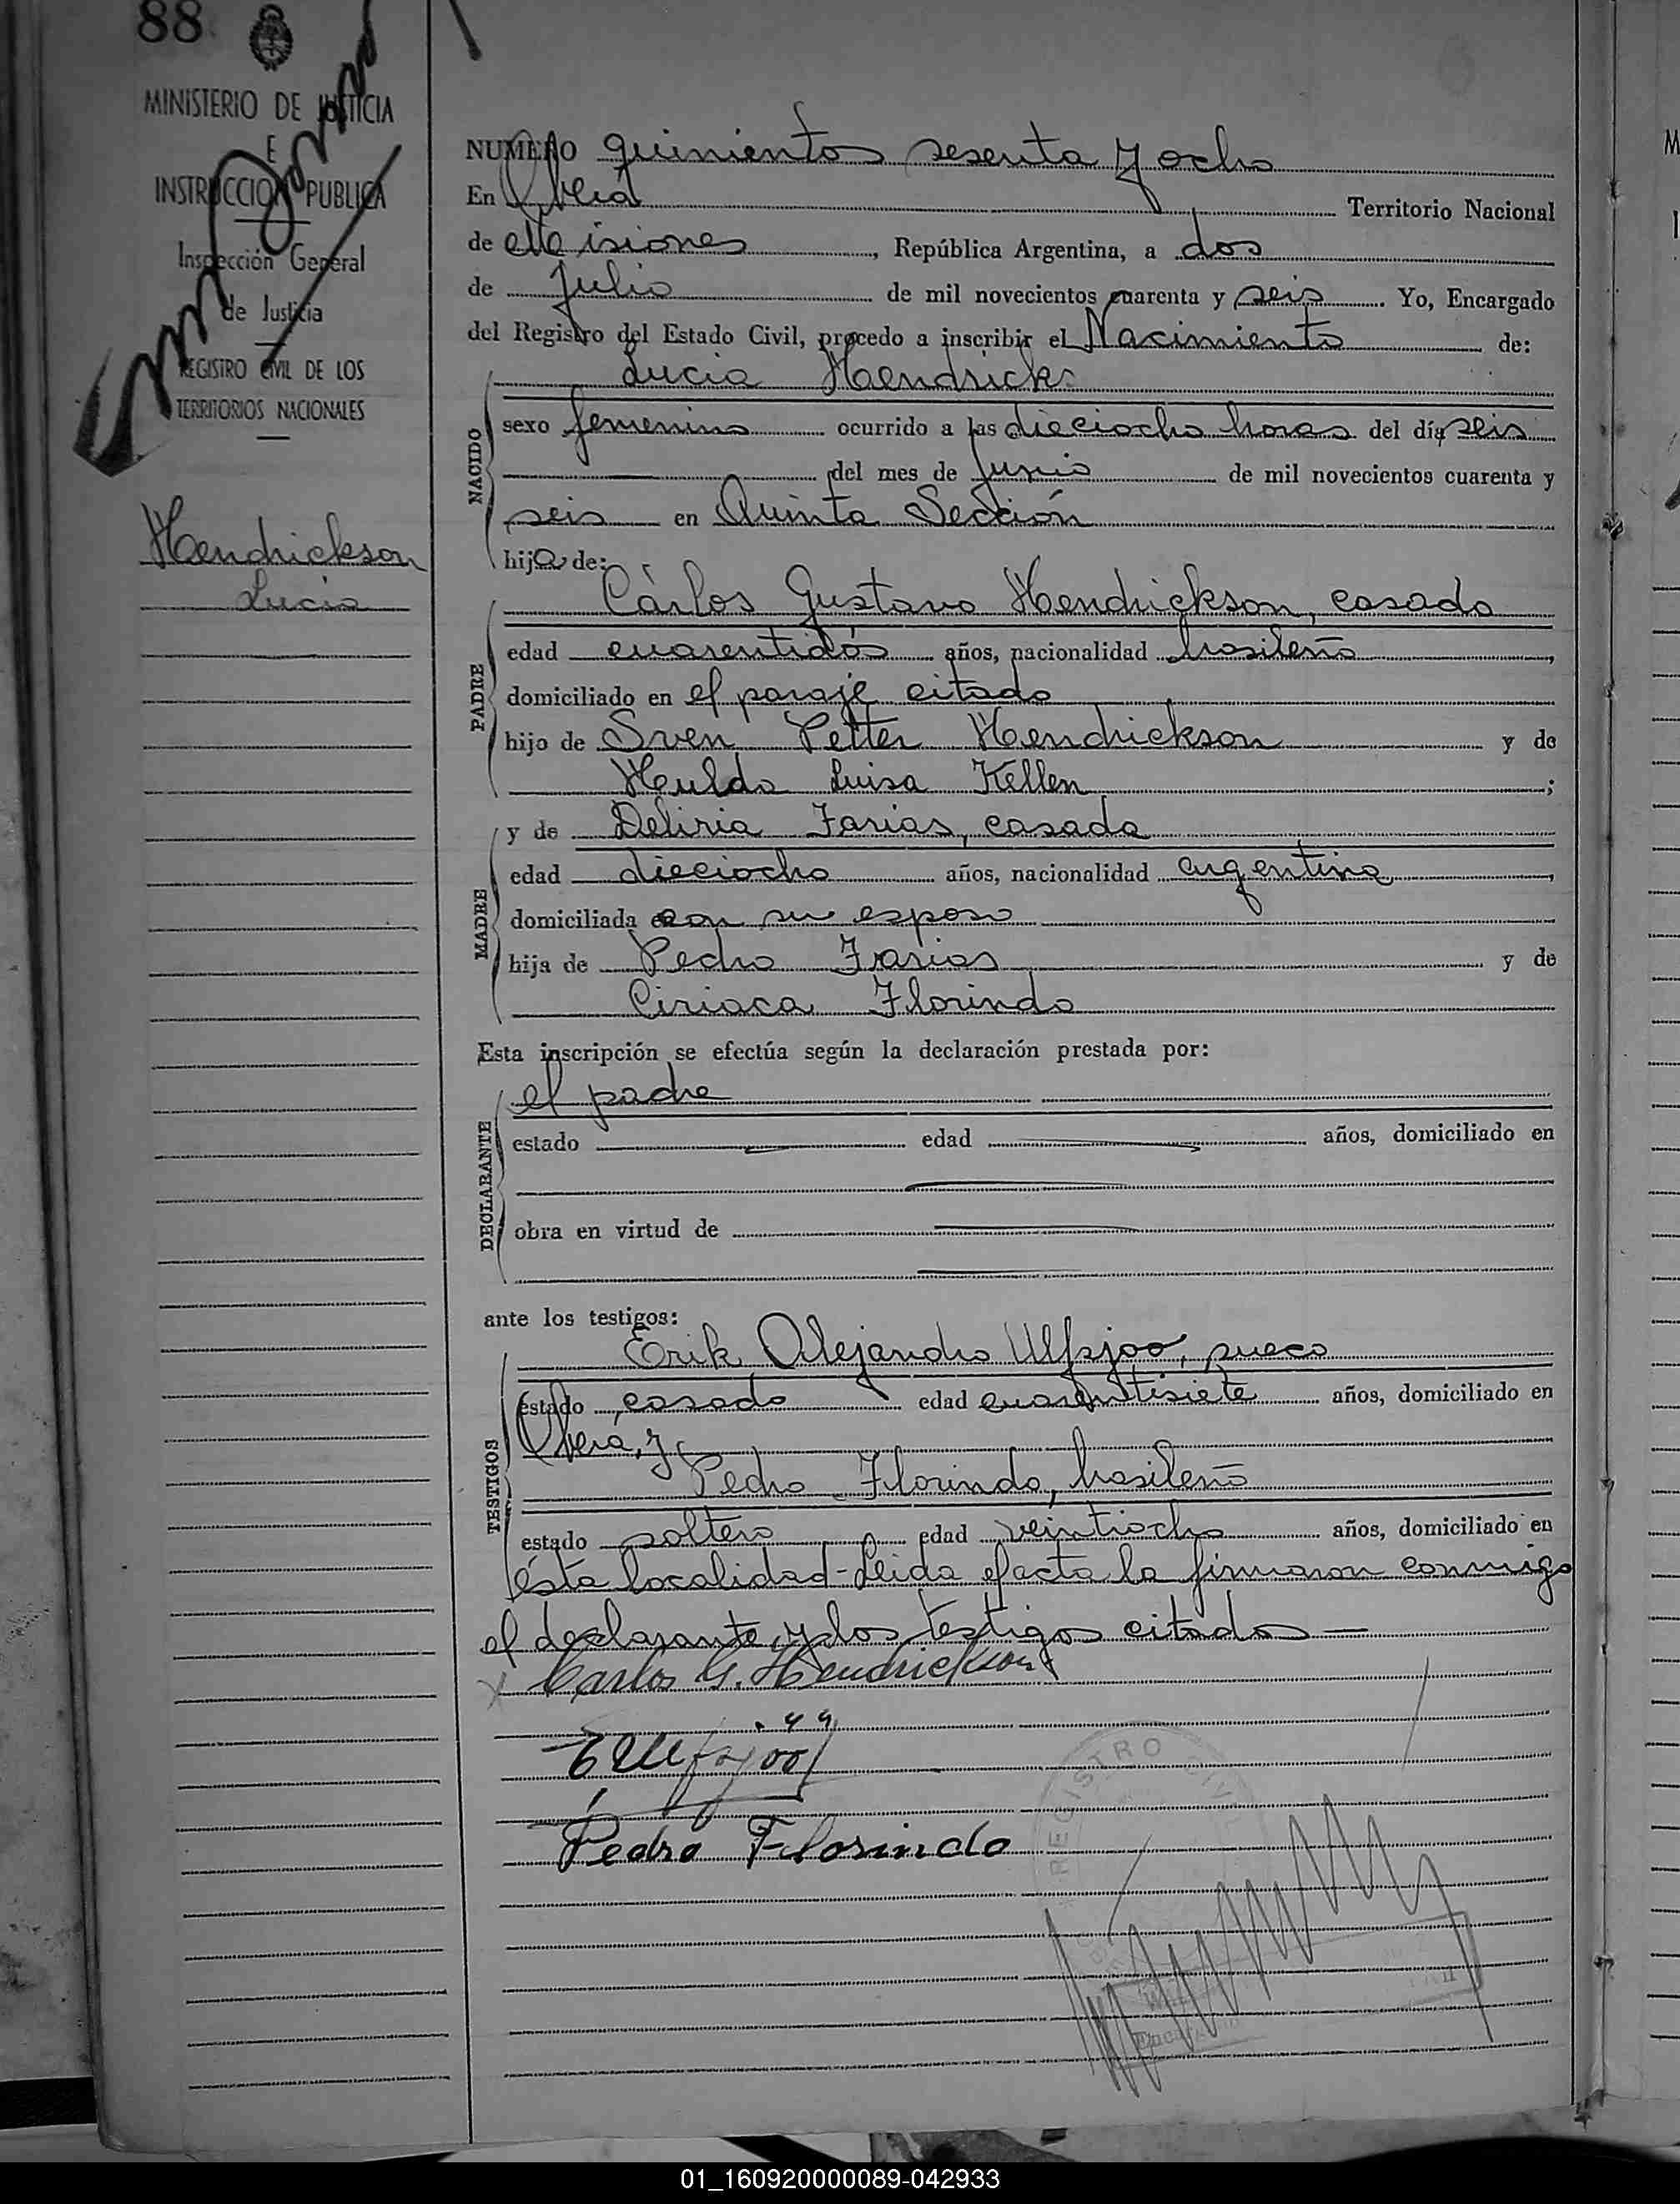 88
MINISTERIO DE JUSTICIA
E
INSTRUCCION PUBLICA
Inspección General
de Justicia
REGISTRO CIVIL DE LOS
TERRITORIOS NACIONALES
Hendrickson
Lucia
NUMERO quinientos sesenta y ocho
En Oberá Territorio Nacional
de Misiones, República Argentina, a dos
de Julio de mil novecientos cuarenta y seis. Yo, Encargado
del Registro del Estado Civil, procedo a inscribir el Nacimiento de:
NACIDO
Lucia Hendricks
sexo femenino ocurrido a las dieciocho horas del día seis
del mes de Junio de mil novecientos cuarenta y
seis en Quinta Sección
hija de:
PADRE
Cárlos Gustavo Hendrickson, casado
edad cuarentidós años, nacionalidad brasileño,
domiciliado en el paraje citado
hijo de Sven Petter Hendrickson y de
Hulda Luisa Kellen;
MADRE
y de Deliria Farias, casada
edad dieciocho años, nacionalidad argentina,
domiciliada con su esposo
hija de Pedro Farias y de
Ciriaca Florindo
Esta inscripción se efectúa según la declaración prestada por:
DECLARANTE
el padre
estado edad años, domiciliado en
obra en virtud de
ante los testigos:
TESTIGOS
Erik Alejandro Ulfsjoo, sueco
estado casado edad cuarentisiete años, domiciliado en
Oberá, y
Pedro Florindo, brasileño
estado soltero edad veintiocho años, domiciliado en
ésta localidad-Leida el acta la firmaron conmigo
el declarante y los testigos citados —
x Carlos G. Hendrickson
Pedro Florindo
REGISTRO CIVIL
01_160920000089-042933